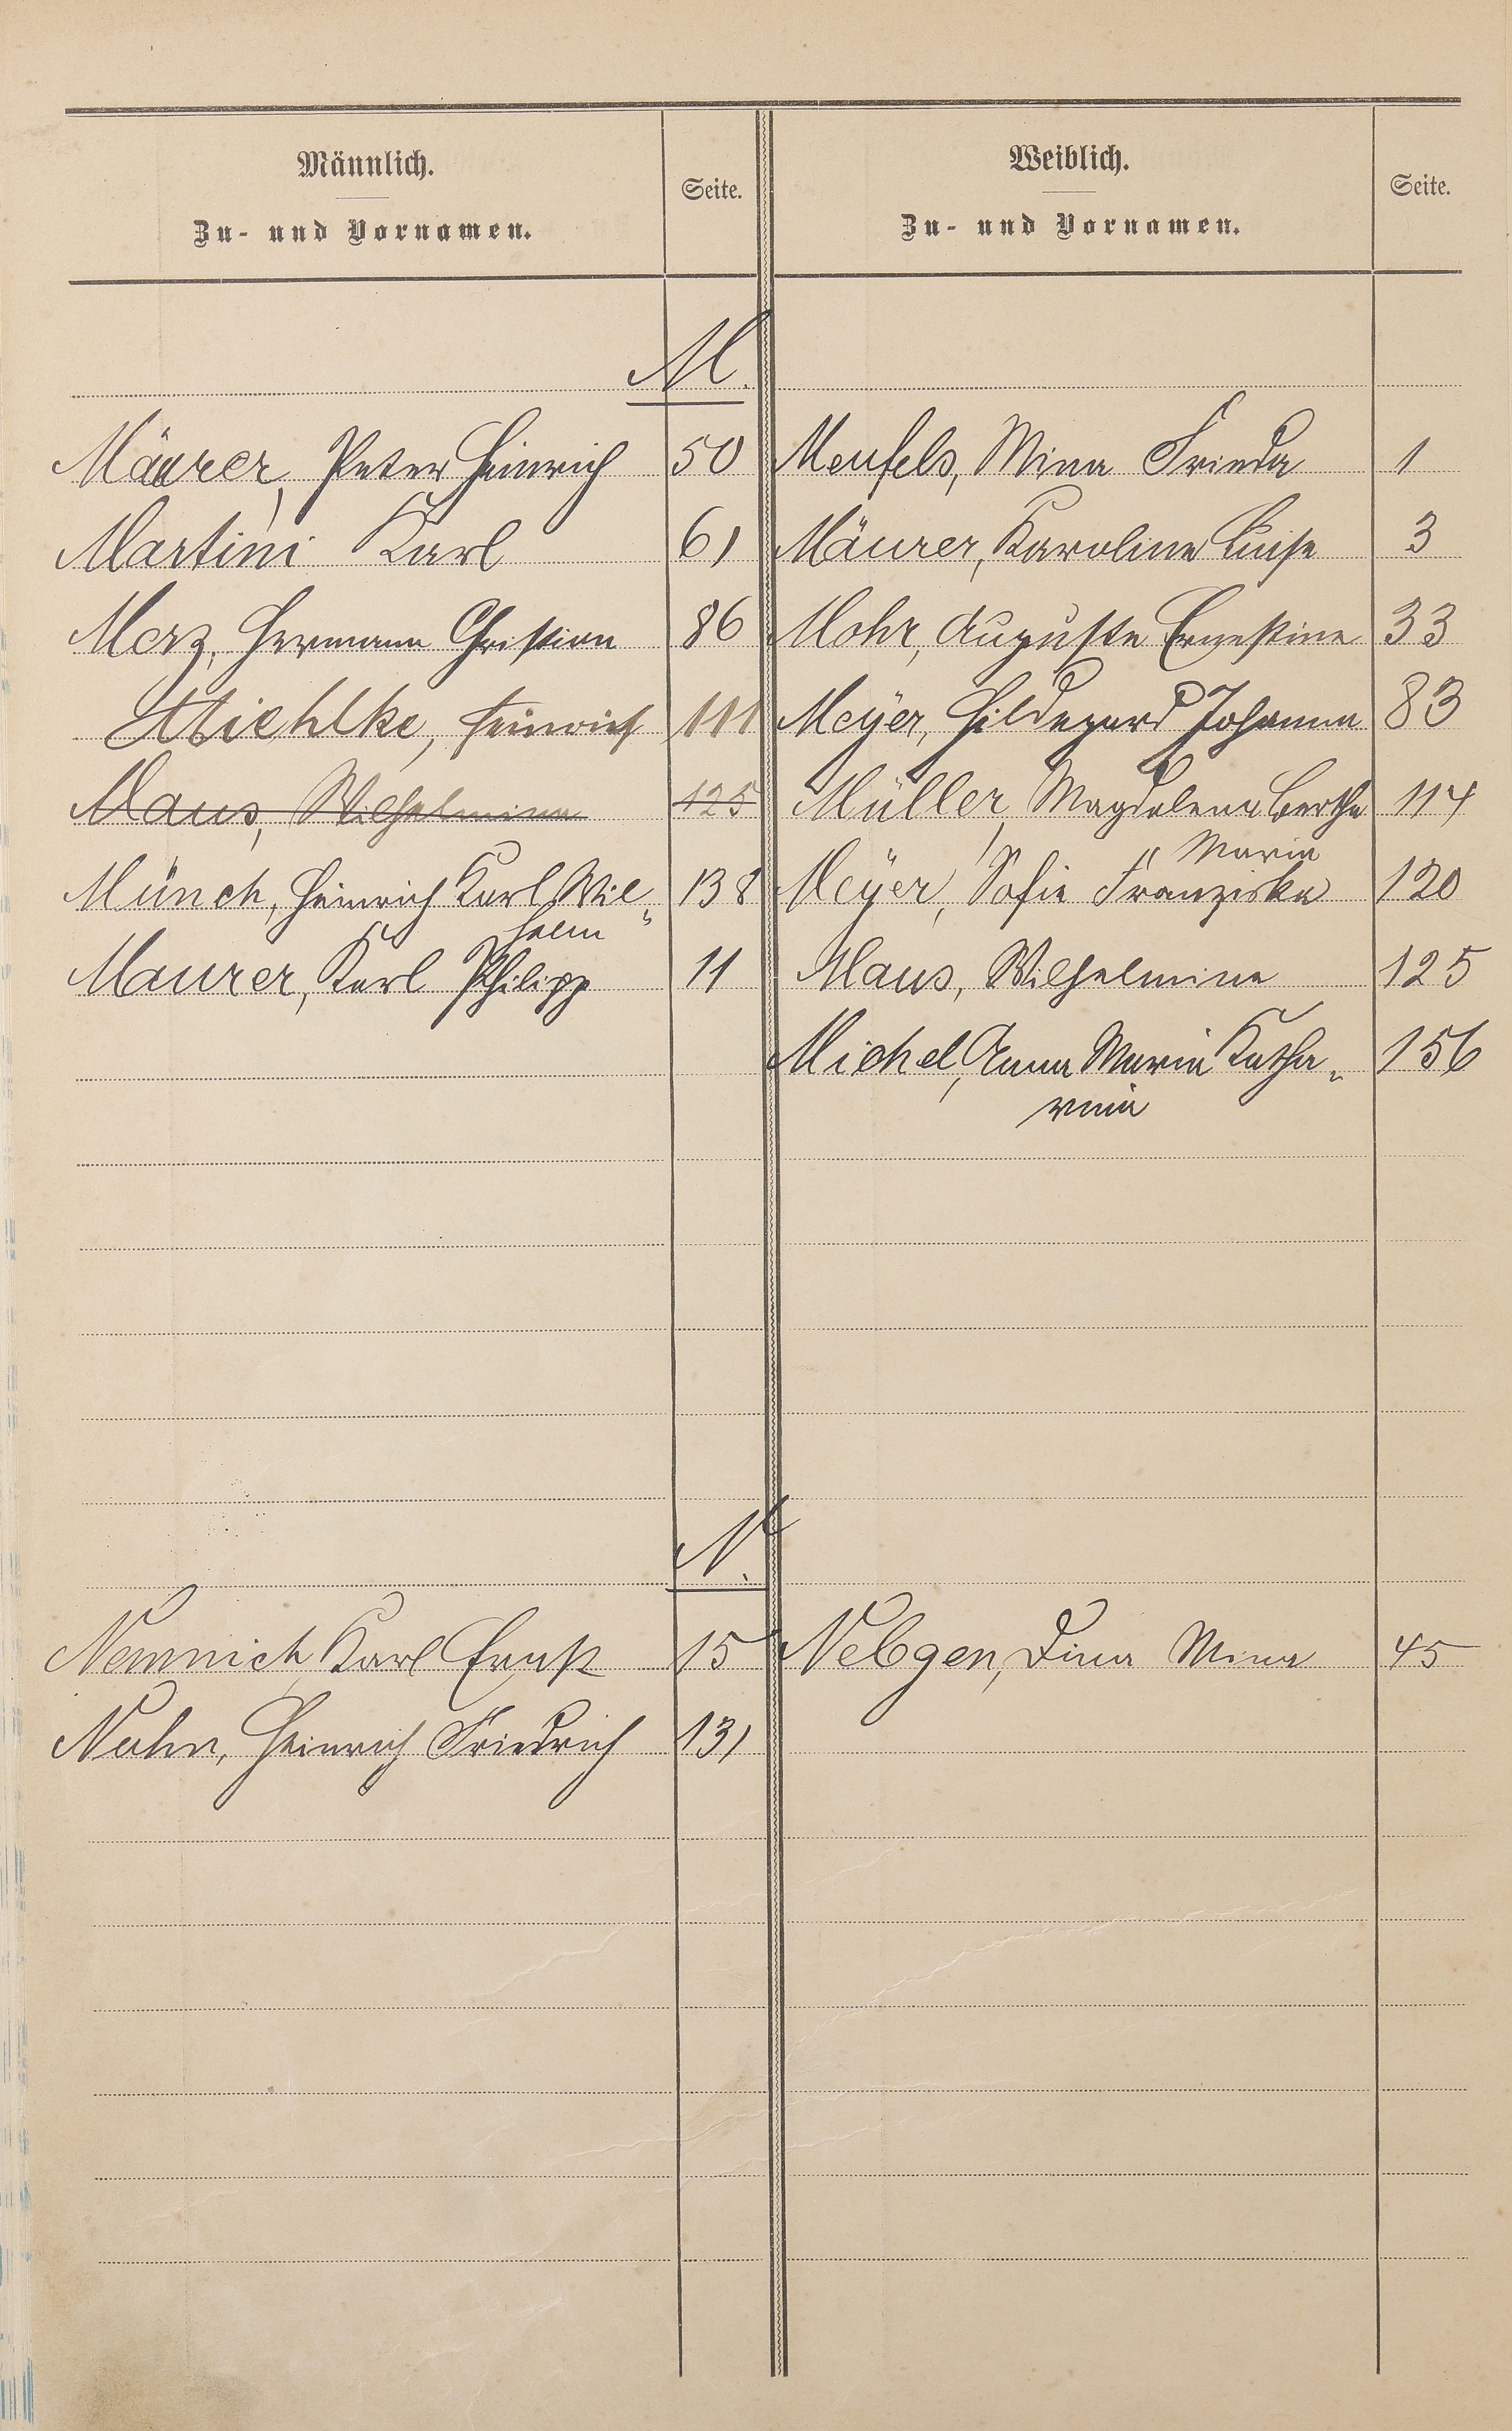 Männlich.
Zu- und Vornamen.
Seite.
Weiblich.
Zu- und Vornamen.
Seite.
M.
Mäurer, Peter Heinrich 50 Menfels, Mina Frieda 1
Martini Karl 61 Mäurer, Karoline Luise 3
Merz, Hermann Christian 86 Mohr, Auguste Ernestine 33
Miehlke, Heinrich 111 Meÿer, Hildegard Johanna 83
Maus, Wilhelmine 125 Müller, Magdalena Bertha 114
Maria
Münch, Heinrich Karl Wil„ 138 Meÿer, Sofie Franziska 120
helm
Maurer, Karl Philipp 11 Maus, Wilhelmine 125
Michel, Anna Maria Katha„ 156
rina
N.
Nemnich, Karl Ernst 15 Nebgen, Dina Mina 45
Nuhn, Heinrich Friedrich 131